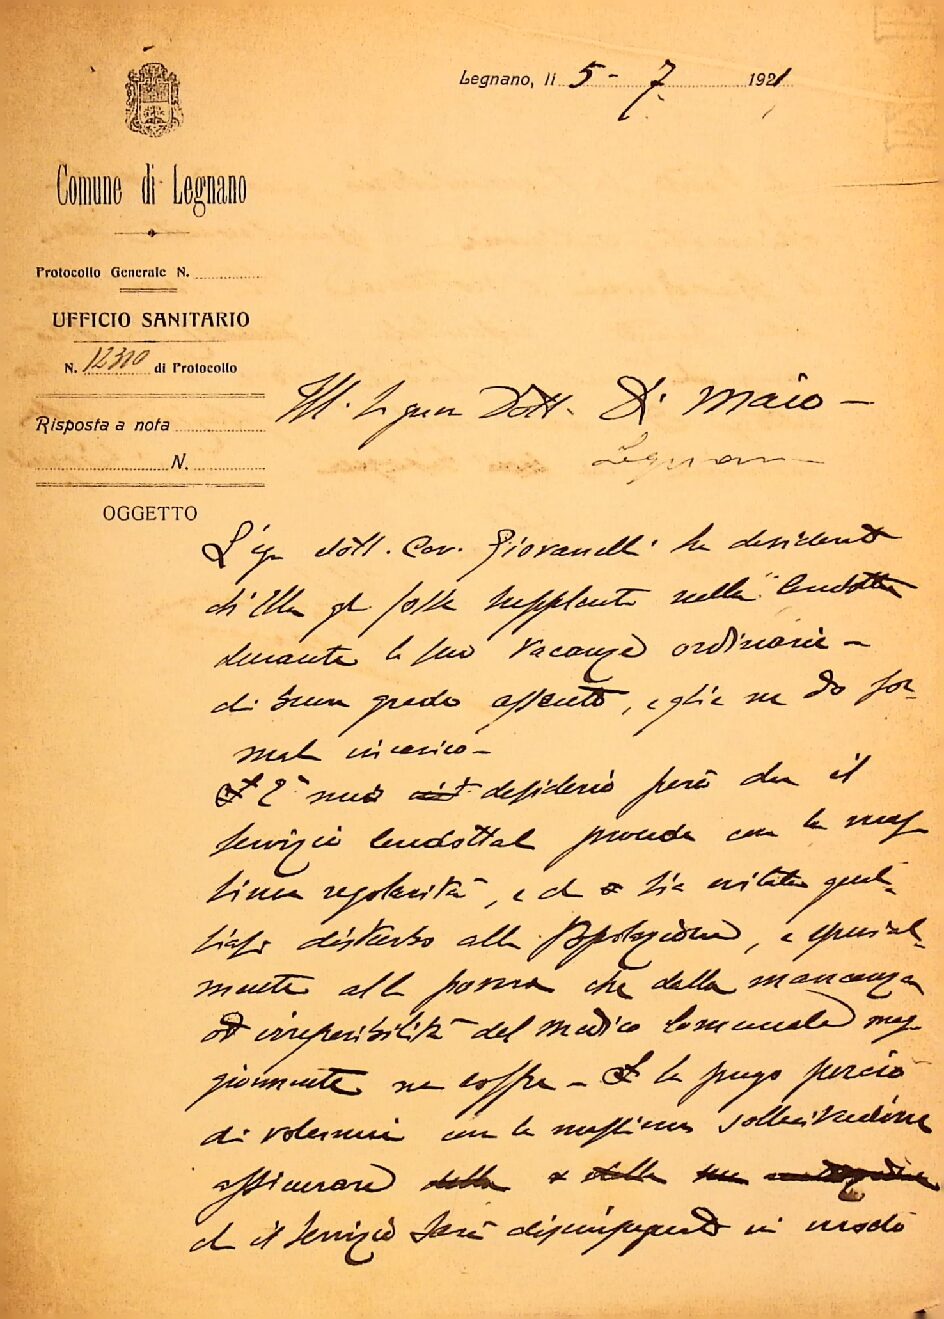 Legnano, li 5 - 7 1921
Comune di Legnano
Protocollo Generale N.
UFFICIO SANITARIO
N. 12310 di Protocollo
Risposta a nota
N.
OGGETTO
Ill. Signor Dott. Di Maio -
Legnano
dott. Cav. Giovanelli ha desiderato
di Ella fosse supplente nella Condotta
durante le sue vacanze ordinarie -
di buon grado assento, e glie ne do for-
male incarico -
È mio desiderio però che il
servizio condottale proceda con la mas-
sima regolarità, e che sia evitato qual-
siasi disturbo alla Popolazione, e special-
mente alla povera che della mancanza
od irreperibilità del medico Comunale mag-
giormente ne soffre - La prego perciò
di volermi con la massima sollecitudine
assicurare della e della
che il servizio sarà disimpegnato in modo